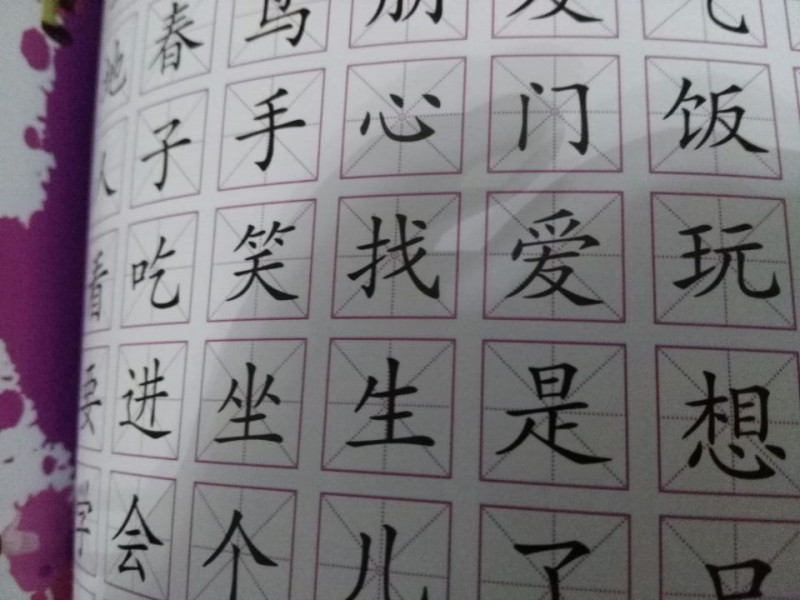 她 春 鸟 朋
子 手 心 门 饭
看 吃 笑 找 爱 玩
要 进 坐 生 是 想
学 会 个 儿 了